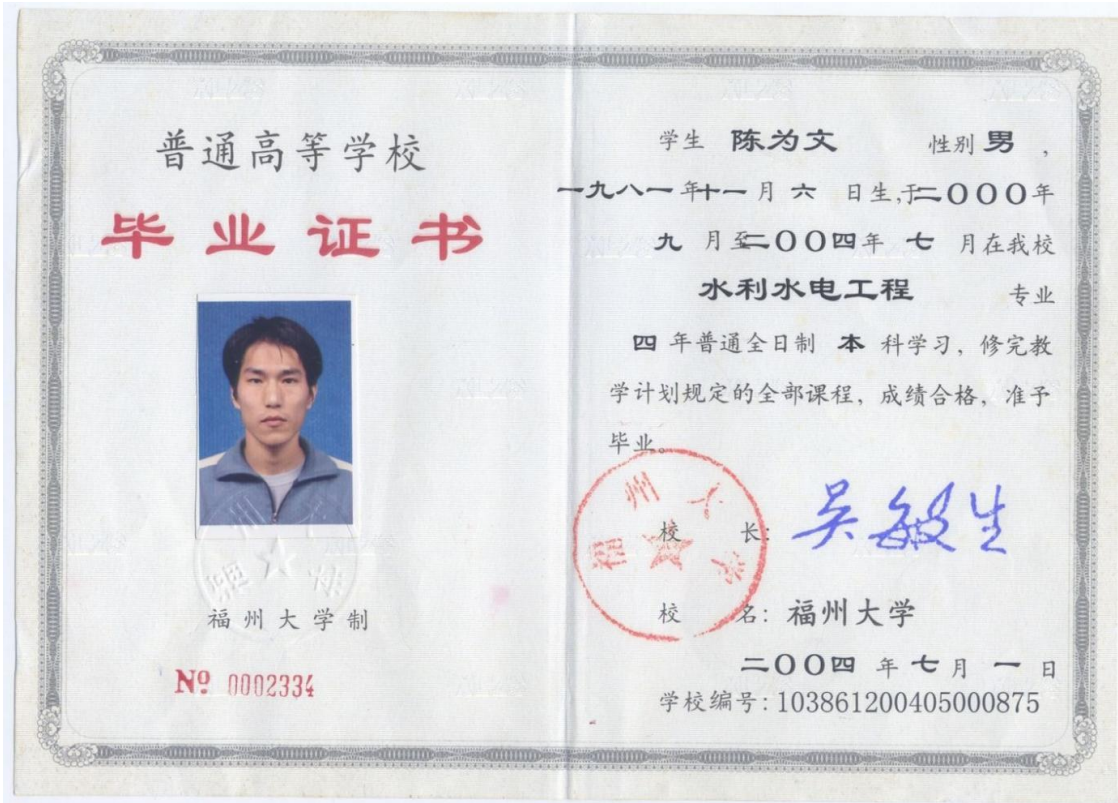 普通高等学校
毕业证书
福州大学
福州大学制
№ 0002334
学生 陈为文 性别 男，
一九八一年十一月 六 日生,于二〇〇〇年
九 月至二〇〇四年 七 月在我校
水利水电工程 专业
四 年普通全日制 本 科学习，修完教
学计划规定的全部课程，成绩合格，准予
毕业。
福州大学
校 长：吴敏生
校 名：福州大学
二〇〇四 年 七 月 一 日
学校编号：103861200405000875